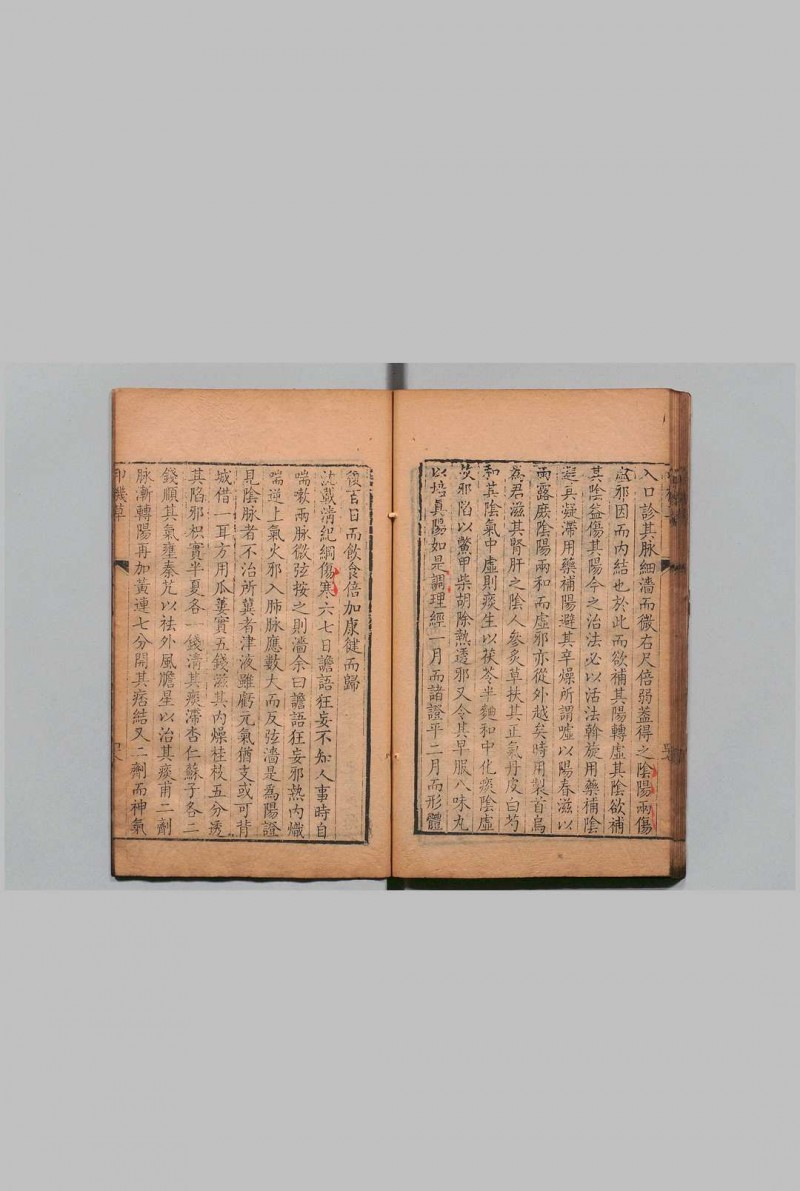 入口診其脉細濇而微右尺倍弱蓋得之陰陽兩傷
虛邪因而内結也於此而欲補其陽轉虛其陰欲補
其陰益傷其陽今之治法必以活法斡旋用藥補陰
避其凝滯用藥補陽避其辛燥所謂噓以陽春滋以
雨露庶陰陽兩和而虛邪亦從外越矣時用製首烏
為君滋其腎肝之陰人參炙草扶其正氣丹皮白芍
和其陰氣中虛則痰生以茯苓半麯和中化痰陰虛
茨邪陷以鱉甲柴胡除熱透邪又令其早服八味丸
以培真陽如是調理經一月而諸證平二月而形體
後百日而飲食倍加康健而歸
沈戴淸紀綱傷寒六七日譫語狂妄不知人事時自
喘欬兩脉微弦按之則濇余曰譫語狂妄邪熱内熾
喘逆上氣火邪入肺脉應數大而反弦濇是為陽證
見陰脉者不治所冀者津液雖虧元氣猶支或可背
城借一耳方用瓜蔞實五錢滋其内燥桂枝五分透
其陷邪枳實半夏各一錢淸其痰滯杏仁蘇子各二
錢順其氣壅秦艽以祛外風膽星以治其痰甫二劑
脉漸轉陽再加黃連七分開其痞結又二劑而神氣
印機草